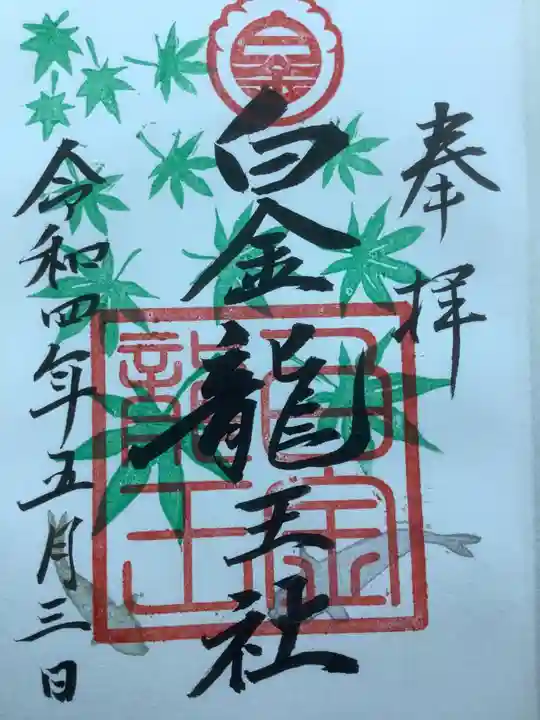 奉拝
白金龍王社
白金
龍王
令和四年五月三日